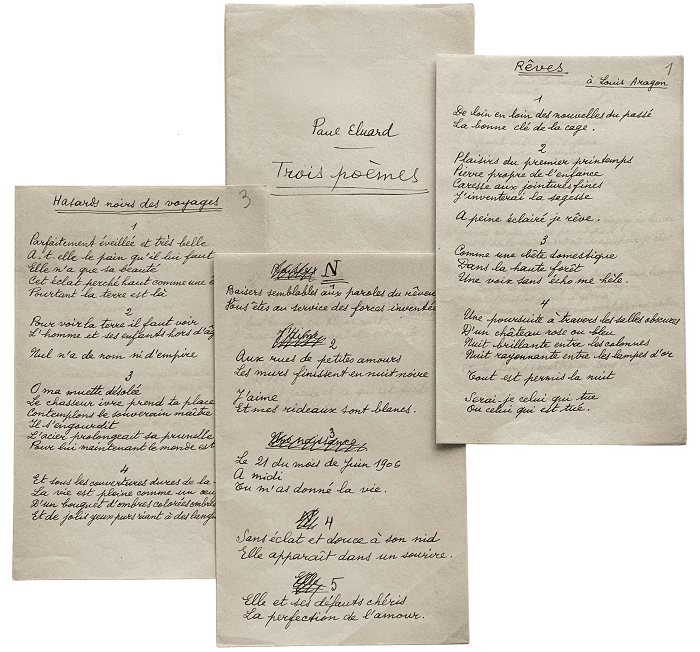 Paul Eluard
Trois poèmes
Rêves
1
à Louis Aragon
1
De loin en loin des nouvelles du passé
La bonne clé de la cage.
2
Plaisirs du premier printemps
Pierre propre de l'enfance
Caresse aux jointures fines
J'inventerai la sagesse
A peine éclairé je rêve.
3
Comme une bête domestique
Dans la haute forêt
Une voix sans écho me hèle.
4
Une poursuite à travers les salles obscures
D'un château rose ou bleu
Nuit brillante entre les colonnes
Nuit rayonnante entre les lampes d'or
Tout est permis la nuit
Serai-je celui qui tue
Ou celui qui est tué.
N
Baisers semblables aux paroles du rêveur
Vous êtes au service des forces inventées
2
Aux rues de petites amours
Les murs finissent en nuit noire
J'aime
Et mes rideaux sont blancs.
3
Le 21 du mois de Juin 1906
A midi
Tu m'as donné la vie.
4
Sans éclat et douce à son nid
Elle apparaît dans un sourire.
Elle 5
Elle et ses défauts chéris
La perfection de l'amour.
Hasards noirs des voyages
3
1
Parfaitement éveillée et très belle
A-t-elle le pain qu'il lui faut
Elle n'a que sa beauté
Cet éclat perché haut comme une
Pourtant la terre est là
2
Pour voir la terre il faut voir
L'homme et ses enfants hors d'âg
Nul n'a de nom ni d'empire
3
O ma muette désolée
Le chasseur ivre prend ta place
Contemplons le souverain maître
Il s'engourdit
L'acier prolongeait sa prunelle
Pour lui maintenant le monde est
4
Et sous les couvertures dures de la
La vie est pleine comme un œu
D'un bouquet d'ombres colorées ombres
Et de jolis yeux purs riant à des